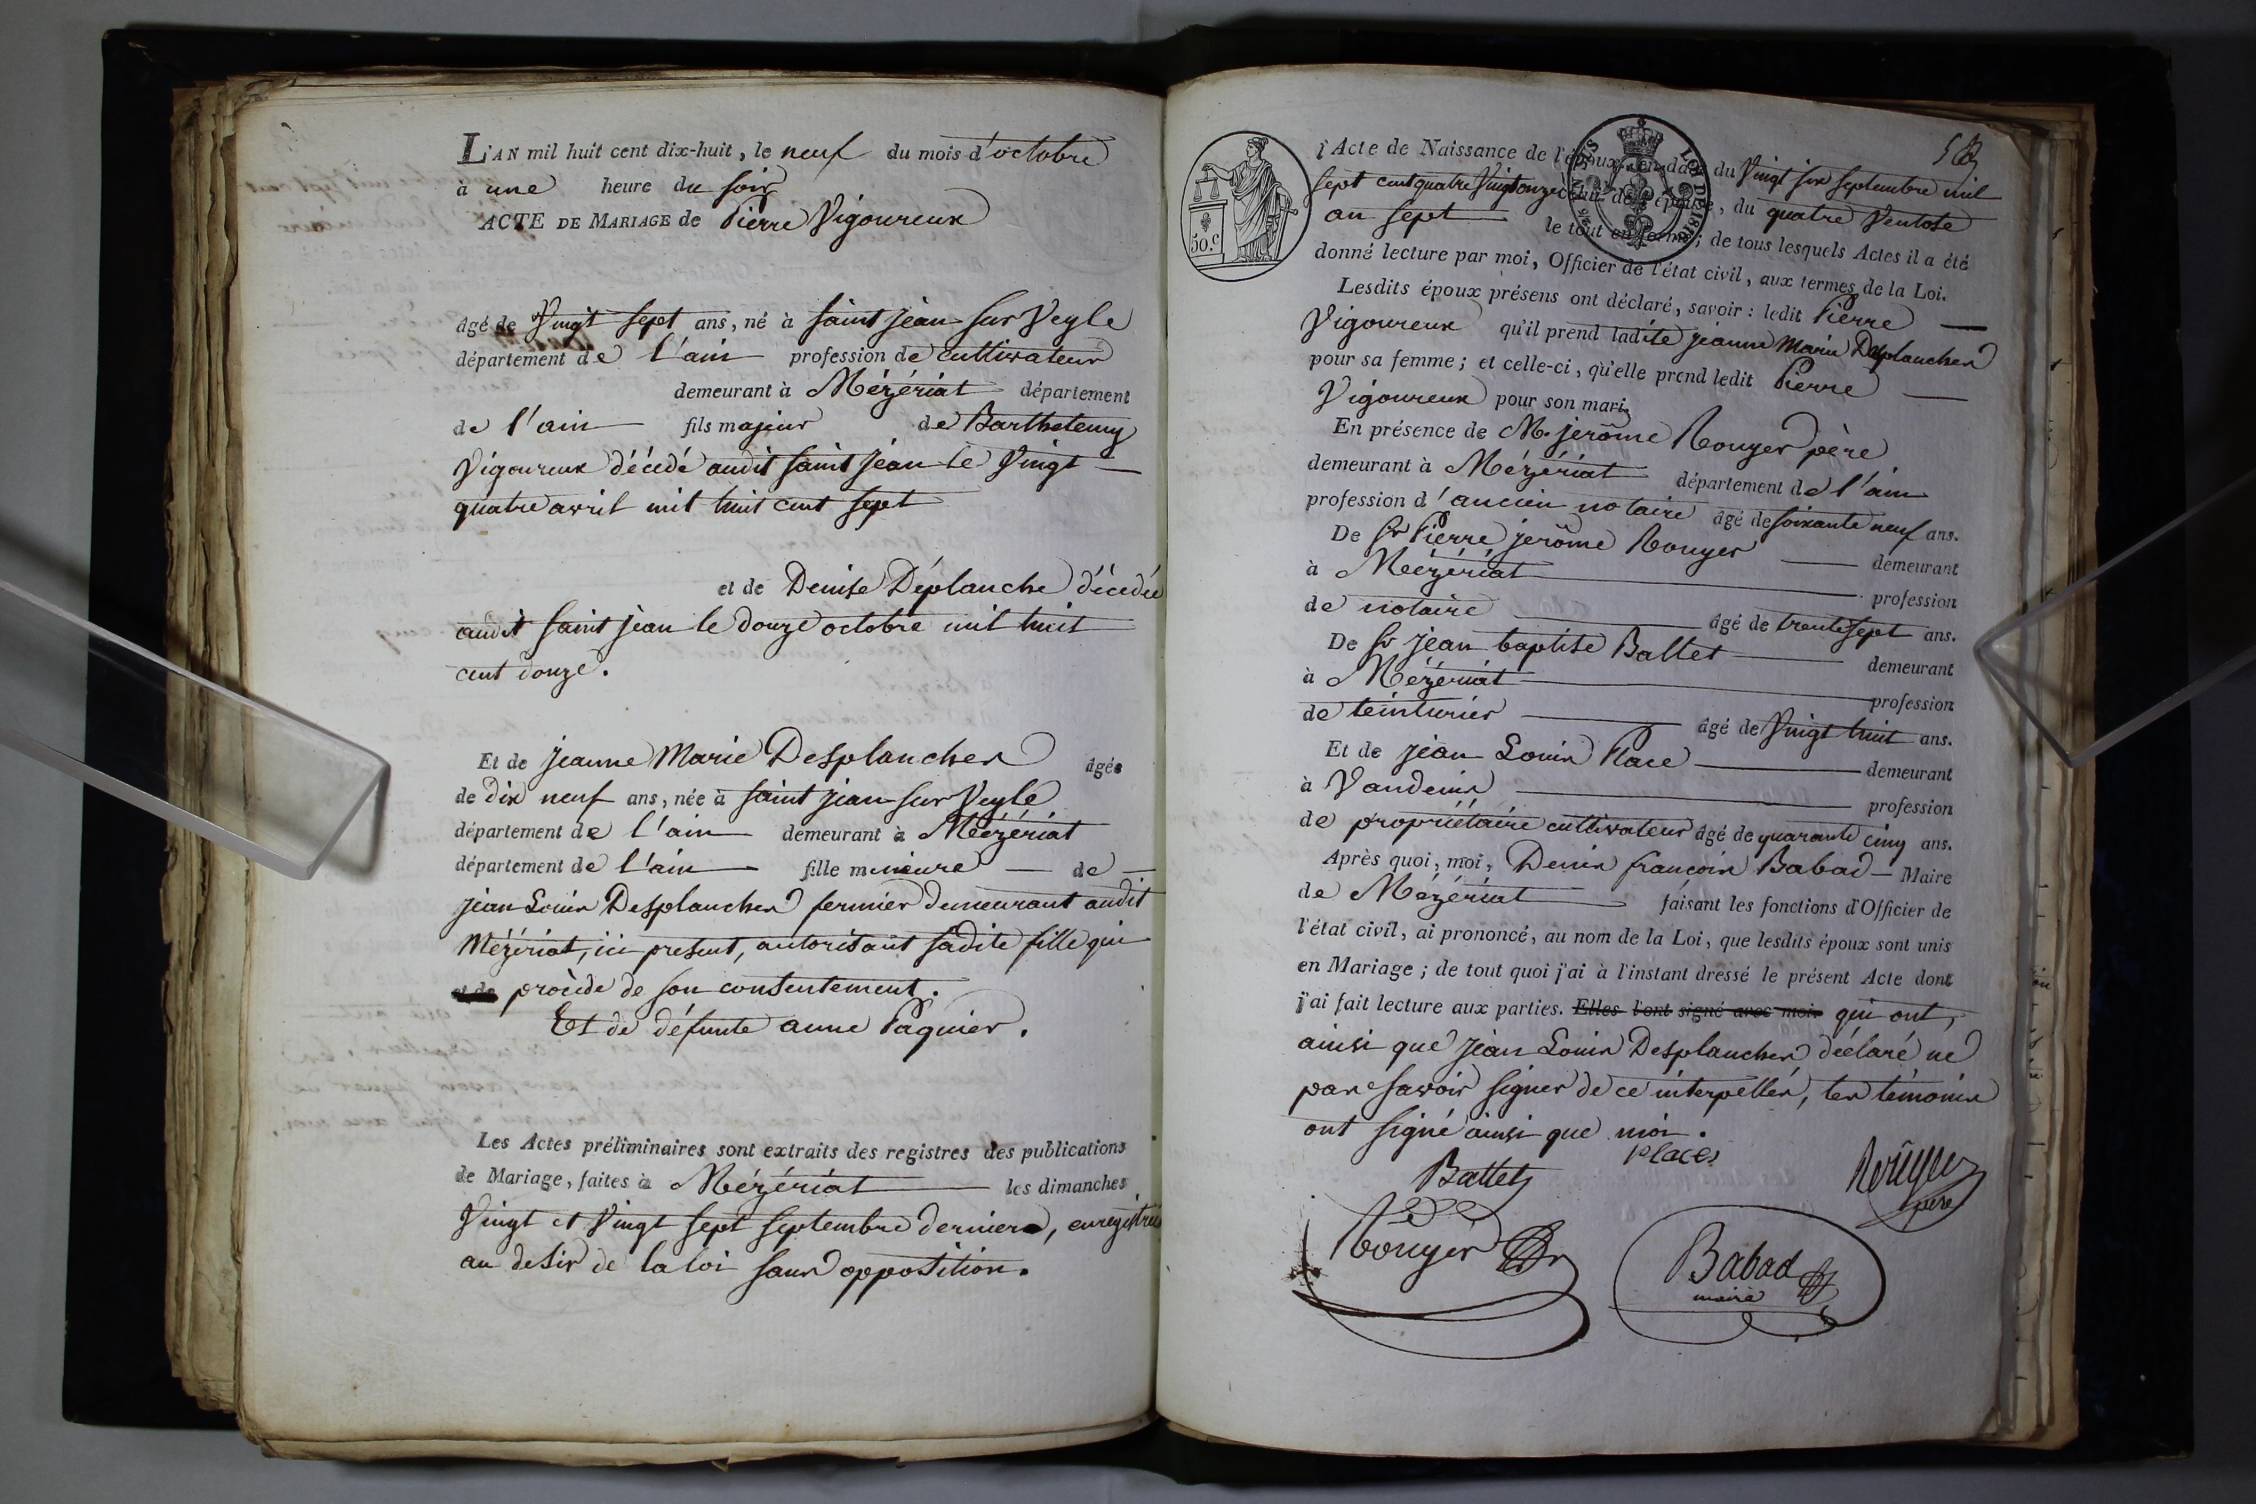 L'AN mil huit cent dix-huit, le neuf du mois d'octobre
à une heure du soir
ACTE DE MARIAGE de Pierre Vigoureux
âgé de Vingt sept ans, né à saint jean sur Veyle
département de l'ain profession de cultivateur
demeurant à Mézériat département
de l'ain fils majeur de Barthelemy
Vigoureux décédé audit saint jean le Vingt
quatre avril mil huit cent sept
et de Denise Déplanche décédée
audit saint jean le douze octobre mil huit
cent douze.
Et de jeanne Marie Desplanches âgée
de dix neuf ans, née à saint jean sur Veyle
département de l'ain demeurant à Mézériat
département de l'ain fille mineure de
jean Louis Desplanches fermier demeurant audit
Mézériat, ici present, autorisant sadite fille qui
et de procède de son consentement.
Et de défunte anne Paquier.
Les Actes préliminaires sont extraits des registres des publications
de Mariage, faites à Mézériat les dimanches
Vingt et Vingt sept septembre dernier, enregistrées
au desir de la loi sans opposition.
l'Acte de Naissance de l'époux, en date du Vingt six septembre mil
sept cent quatre Vingt onze celui de l'épouse, du quatre Ventose
an sept le tout en forme; de tous lesquels Actes il a été
donné lecture par moi, Officier de l'état civil, aux termes de la Loi.
Lesdits époux présens ont déclaré, savoir: ledit Pierre
Vigoureux qu'il prend ladite jeanne Marie Desplanches
pour sa femme; et celle-ci, qu'elle prend ledit Pierre
Vigoureux pour son mari.
En présence de M. jerôme Rouyer père
demeurant à Mézériat département de l'ain
profession d'ancien notaire âgé de soixante neuf ans.
De Sr Pierre jerôme Rouyer demeurant
à Mézériat profession
de notaire âgé de trente sept ans.
De Sr jean baptiste Battet demeurant
à Mézériat profession
de teinturier âgé de Vingt huit ans.
Et de jean Louis Place demeurant
à Vandeins profession
de propriétaire cultivateur âgé de quarante cinq ans.
Après quoi, moi, Denis françois Babad Maire
de Mézériat faisant les fonctions d'Officier de
l'état civil, ai prononcé, au nom de la Loi, que lesdits époux sont unis
en Mariage; de tout quoi j'ai à l'instant dressé le présent Acte dont
j'ai fait lecture aux parties. Elles l'ont signé avec moi qui ont,
ainsi que jean Louis Desplanches déclaré ne
pas savoir signer de ce interpellés, les témoins
ont signé ainsi que moi.
Place
Battet
Rouyer
père
Rouyer
Babad
maire
50.c